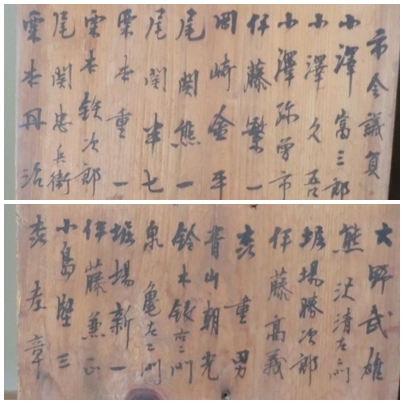 市会議員
小澤富三郎
小澤久吾
小澤弥曽市
伊藤繁一
岡崎金平
尾関熊一
尾関半七
栗本重一
栗本鉄次郎
尾関忠兵衛
栗本丹治
大野武雄
熊沢清左ヱ門
堀場勝次郎
伊藤高義
重男
青山朝光
鈴木銀左ヱ門
泉亀左ヱ門
堀場新一
伊藤兼正
小島堅三
左章